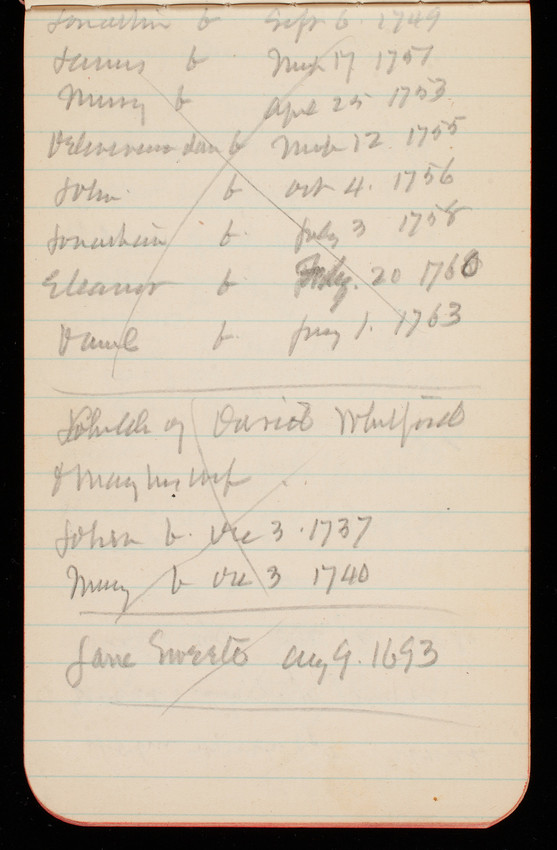 Jonathan b Sept 6. 1749
James b Mar 17 1751
Mary b Apl 25 1753
b Mar 12 1755
John b Oct 4. 1756
Jonathan b. July 3 1758
Eleanor b 20 1760
Daniel b. 1. 1763
Child of David Whitford
& Mary his wif
John b. Dec 3. 1737
Mary b Dec 3 1740
Jane Sweets Aug 9. 1693